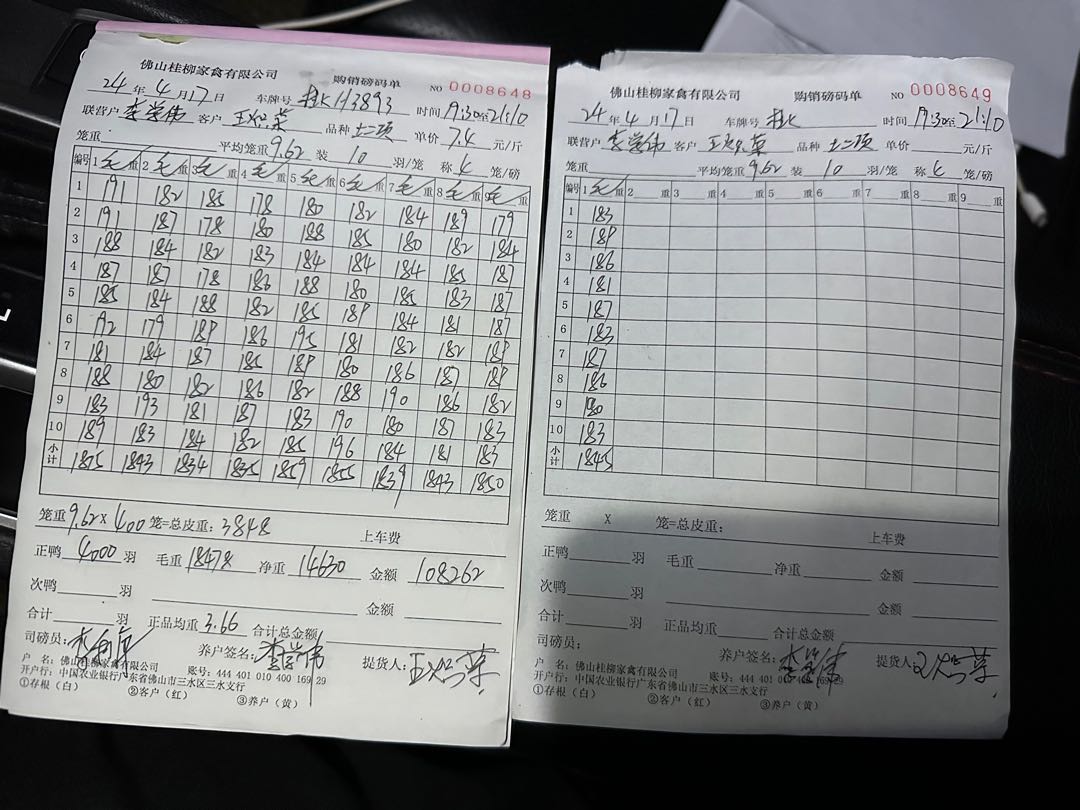 佛山桂柳家禽有限公司 购销磅码单 NO 0008648
24 年 4 月 17 日 车牌号 桂K H3893 时间 19:30至21:10
联营户 李学伟 客户 品种 土二项 单价 7.4 元/斤
笼重: 平均笼重 9.62 装 10 羽/笼 称 4 笼/磅
编号 1 毛 重 2 毛 重 3 毛 重 4 毛 重 5 毛 重 6 毛 重 7 毛 重 8 毛 重 9 毛 重
1 191 182 185 178 180 182 184 189 179
2 191 187 178 180 188 185 180 182 184
3 188 184 182 183 184 184 184 185 187
4 187 187 178 186 188 180 185 183 187
5 185 184 188 182 185 189 184 181 187
6 192 179 189 186 195 181 182 182 189
7 181 184 187 185 189 180 186 187 189
8 188 180 182 186 182 188 190 186 182
9 183 193 181 187 183 190 180 187 183
10 189 183 184 182 185 196 184 181 183
小计 1875 1843 1834 1835 1859 1855 1839 1843 1850
笼重 9.62 x 400 笼=总皮重: 3848 上车费
正鸭 4000 羽 毛重 18478 净重 14630 金额 108262
次鸭 羽 金额
合计 羽 正品均重 3.66 合计总金额
司磅员: 养户签名: 李学伟 提货人:
户 名: 佛山桂柳家禽有限公司 账号: 444 401 010 400 169 29
开户行: 中国农业银行广东省佛山市三水区三水支行
①存根（白） ②客户（红） ③养户（黄）
佛山桂柳家禽有限公司 购销磅码单 NO 0008649
24 年 4 月 17 日 车牌号 桂K 时间 19:30至21:10
联营户 李学伟 客户 品种 土二项 单价 元/斤
笼重 平均笼重 9.62 装 10 羽/笼 称 4 笼/磅
编号 1 毛 重 2 重 3 重 4 重 5 重 6 重 7 重 8 重 9 重
1 183
2 189
3 186
4 181
5 187
6 183
7 187
8 186
9 180
10 183
小计 1845
笼重 x 笼=总皮重: 上车费
正鸭 羽 毛重 净重 金额
次鸭 羽 金额
合计 羽 正品均重 合计总金额
司磅员: 养户签名: 李学伟 提货人:
户 名: 佛山桂柳家禽有限公司 账号: 444 401 010 400 169 29
开户行: 中国农业银行广东省佛山市三水区三水支行
①存根（白） ②客户（红） ③养户（黄）